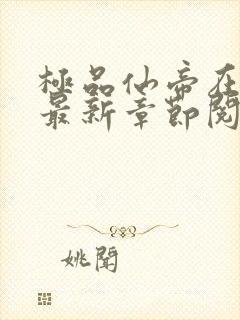 極品仙帝在
最新章節閱
姚聞